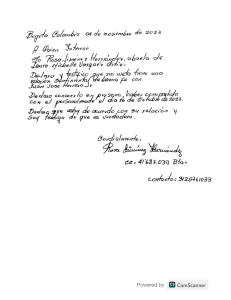 Bogota Colombia 04 de noviembre de 2023
A Quien Interese
Yo Rosa Jimenez Hernández, abuela de
Laura
Declaro y testifico que mi nieta tiene una
relacion sentimental de buena fe con
Juan Jose
Declaro conocerlo en persona, haber compartido
con el personalmente el dia 16 de Octubre de 2023.
Declaro que estoy de acuerdo con su relacion y
Soy testigo de que es verdadera.
Cordialmente.
Rosa Jiménez Hernández
cc. 41'687.039 Bta.
contacto: 3125761039
Powered by CS CamScanner